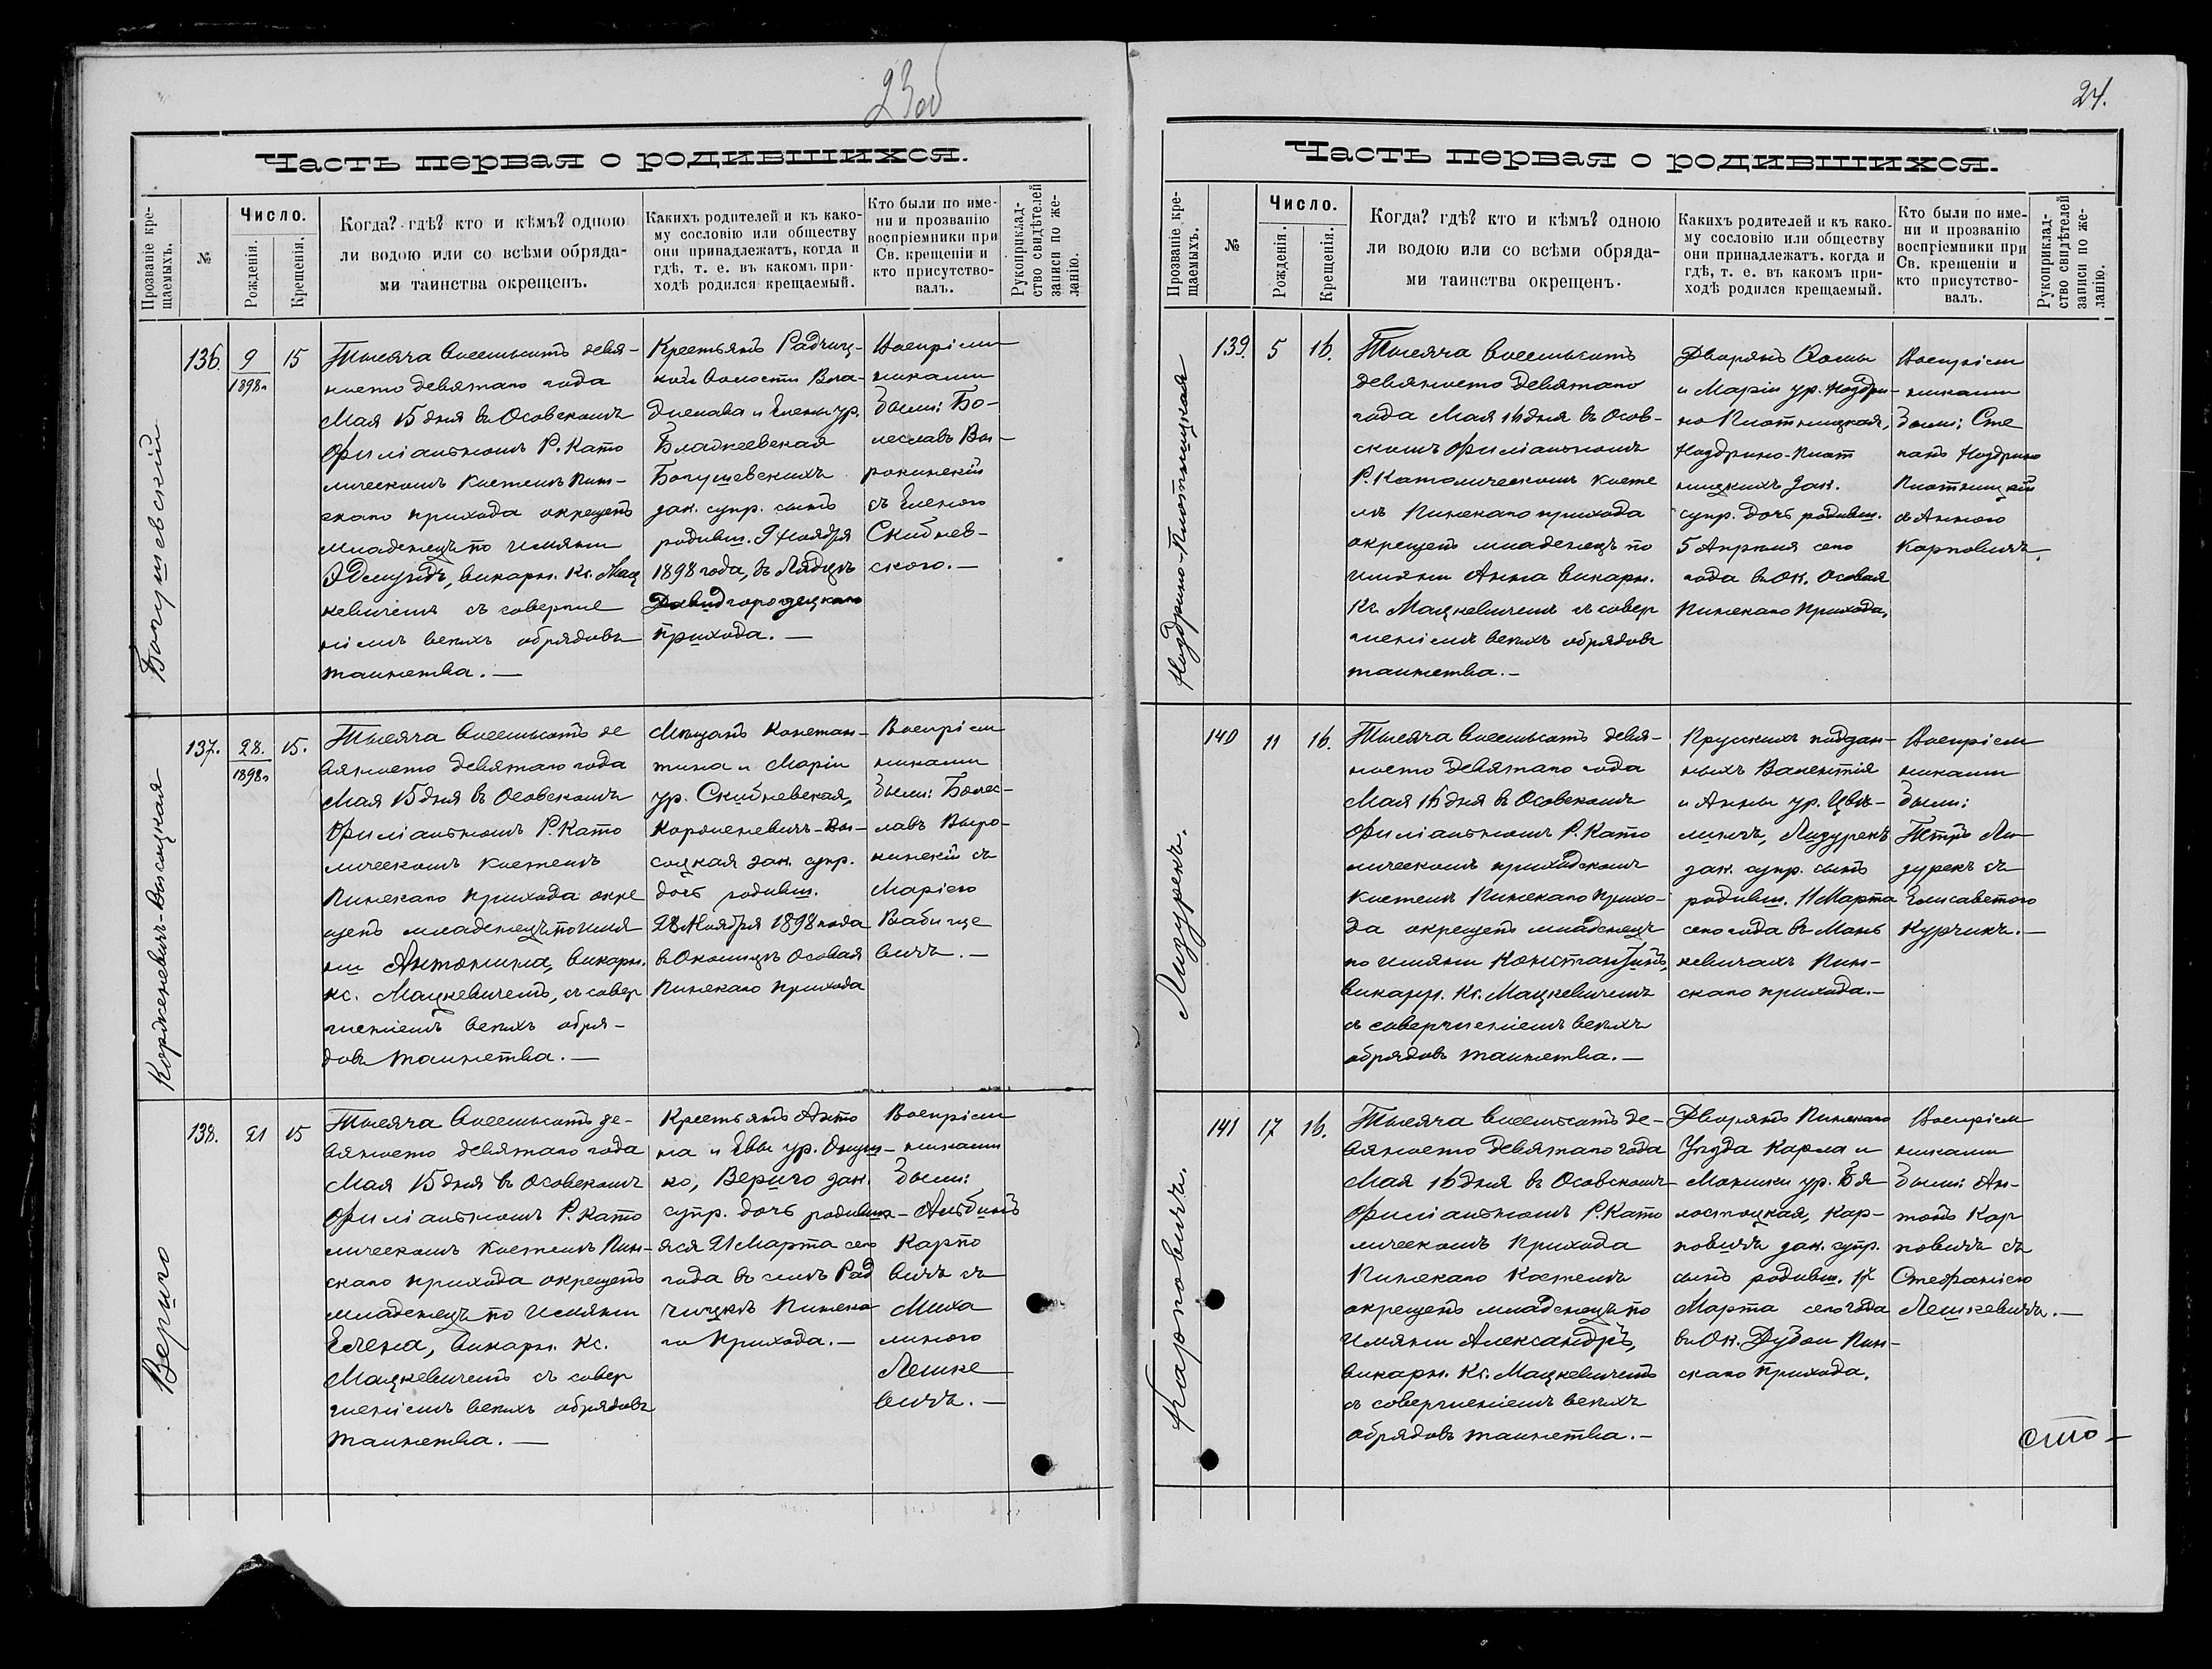 23об
Часть первая о родившихся.
Прозваніе кре-
щаемыхъ.
№
Число.
Рожденія.
Крещенія.
Когда? гдѣ? кто и кѣмъ? одною
ли водою или со всѣми обряда-
ми таинства окрещенъ.
Какихъ родителей и къ како-
му сословію или обществу
они принадлежатъ, когда и
гдѣ, т. е. въ какомъ при-
ходѣ родился крещаемый.
Кто были по име-
ни и прозванію
воспріемники при
Св. крещеніи и
кто присутство-
валъ.
Рукоприклад-
ство свидѣтелей
записи по же-
ланію.
Богушевскій
136.
9
1898г.
15
Тысяча восемьсотъ девя-
носто девятаго года
Мая 15 дня въ Осовскомъ
Филіальномъ Р. Като
лическомъ костелѣ Пин-
скаго прихода окрещенъ
младенецъ по имяни
Эдмундъ, викарн. Кс. Мац
кевичемъ съ соверше
ніемъ всѣхъ обрядовъ
таинства. —
Крестьянъ Радчиц-
кой волости Вла-
дислава и Елены ур.
Бладкеевская
Богушевскихъ
зак. супр. сынъ
родивш. 9 Ноября
1898 года, въ Лядцѣ
Давидгородецкаго
прихода. —
Воспріем
никами
были: Бо-
леславъ Вы-
рокинскій
съ Еленою
Скибнев-
ского. —
Корженевичъ-Высоцкая
137.
28.
1898г.
15.
Тысяча восемьсотъ де
вяносто девятаго года
Мая 15 дня въ Осовскомъ
Филіальномъ Р. Като
лическомъ костелѣ
Пинскаго прихода окре
щенъ младенецъ по имя
ни Антонина, викарн.
кс. Мацкевичемъ, съ совер
шеніемъ всѣхъ обря-
довъ таинства. —
Мѣщанъ Констан-
тина и Маріи
ур. Скибневская,
Корженевичъ-Вы-
соцкая зак. супр.
дочь родивш.
28 Ноября 1898 года
въ Околицѣ Осовая
Пинскаго прихода
Воспріем
никами
были: Болес-
лавъ Выро-
кинскій съ
Маріею
Бабище
вичъ. —
Вериго
138.
21
15
Тысяча восемьсотъ де-
вяносто девятаго года
Мая 15 дня въ Осовскомъ
Филіальномъ Р. Като
лическомъ костелѣ Пин-
скаго прихода окрещенъ
младенецъ по имяни
Елена, викарн. Кс.
Мацкевичемъ съ совер
шеніемъ всѣхъ обрядовъ
таинства. —
Крестьянъ Анто
на и Евы ур. Онуш-
ко, Вериго зак.
супр. дочь родивша-
яся 21 Марта сего
года въ селѣ Рад
чицкѣ Пинска
го прихода. —
Воспріем
никами
были:
Альбинъ
Карпо
вичъ съ
Миха
линою
Лешке
вичъ. —
24.
Часть первая о родившихся.
Прозваніе кре-
щаемыхъ.
№
Число.
Рожденія.
Крещенія.
Когда? гдѣ? кто и кѣмъ? одною
ли водою или со всѣми обряда-
ми таинства окрещенъ.
Какихъ родителей и къ како-
му сословію или обществу
они принадлежатъ. когда и
гдѣ, т. е. въ какомъ при-
ходѣ родился крещаемый.
Кто были по име-
ни и прозванію
воспріемники при
Св. крещеніи и
кто присутство-
валъ.
Рукоприклад-
ство свидѣтелей
записи по же-
ланію.
Ноздрино-Плотницкая
139.
5
16.
Тысяча восемьсотъ
девяносто девятаго
года Мая 16 дня въ Осов-
скомъ Филіальномъ
Р. Католическомъ косте
лѣ Пинскаго прихода
окрещенъ младенецъ по
имяни Анна викарн.
Кс. Мацкевичемъ съ совер
шеніемъ всѣхъ обрядовъ
таинства. —
Дворянъ Ѳомы
и Маріи ур. Ноздри-
но Плотницкая,
Ноздрино-Плот
ницкихъ зак.
супр. дочь родивш.
5 Апрѣля сего
года въ Ок. Осовая
Пинскаго прихода.
Воспріем
никами
были: Сте
панъ Ноздрино
Плотницкій
съ Анною
Карповичъ.
Мазурекъ.
140
11
16.
Тысяча восемьсотъ девя-
носто девятаго года
Мая 16 дня въ Осовскомъ
Филіальномъ Р. Като
лическомъ приходскомъ
костелѣ Пинскаго прихо-
да окрещенъ младенецъ
по имяни Константинъ,
викарн. Кс. Мацкевичемъ
съ совершеніемъ всѣхъ
обрядовъ таинства. —
Прусскихъ поддан-
ныхъ Валентія
и Анны ур. Цви-
линъ, Мазурекъ
зак. супр. сынъ
родивш. 11 Марта
сего года въ Мань
кевичахъ Пин-
скаго прихода. —
Воспріем
никами
были:
Петръ Ма
зурекъ съ
Елисаветою
Курчикъ. —
Карповичъ.
141
17
16.
Тысяча восемьсотъ де-
вяносто девятаго года
Мая 16 дня въ Осовскомъ
Филіальномъ Р. Като
лическомъ Прихода
Пинскаго Костелѣ
окрещенъ младенецъ по
имяни Александръ,
викарн. Кс. Мацкевичемъ
съ совершеніемъ всѣхъ
обрядовъ таинства. —
Дворянъ Пинскаго
Уѣзда Карла и
Моники ур. Бѣ
лостоцкая, Кар-
повичъ зак. супр.
сынъ родивш. 17
Марта сего года
въ Ок. Дубои Пин-
скаго прихода.
Воспріем
никами
были: Ан-
тонъ Кар
повичъ съ
Стефаніею
Лешкевичъ. —
сто —